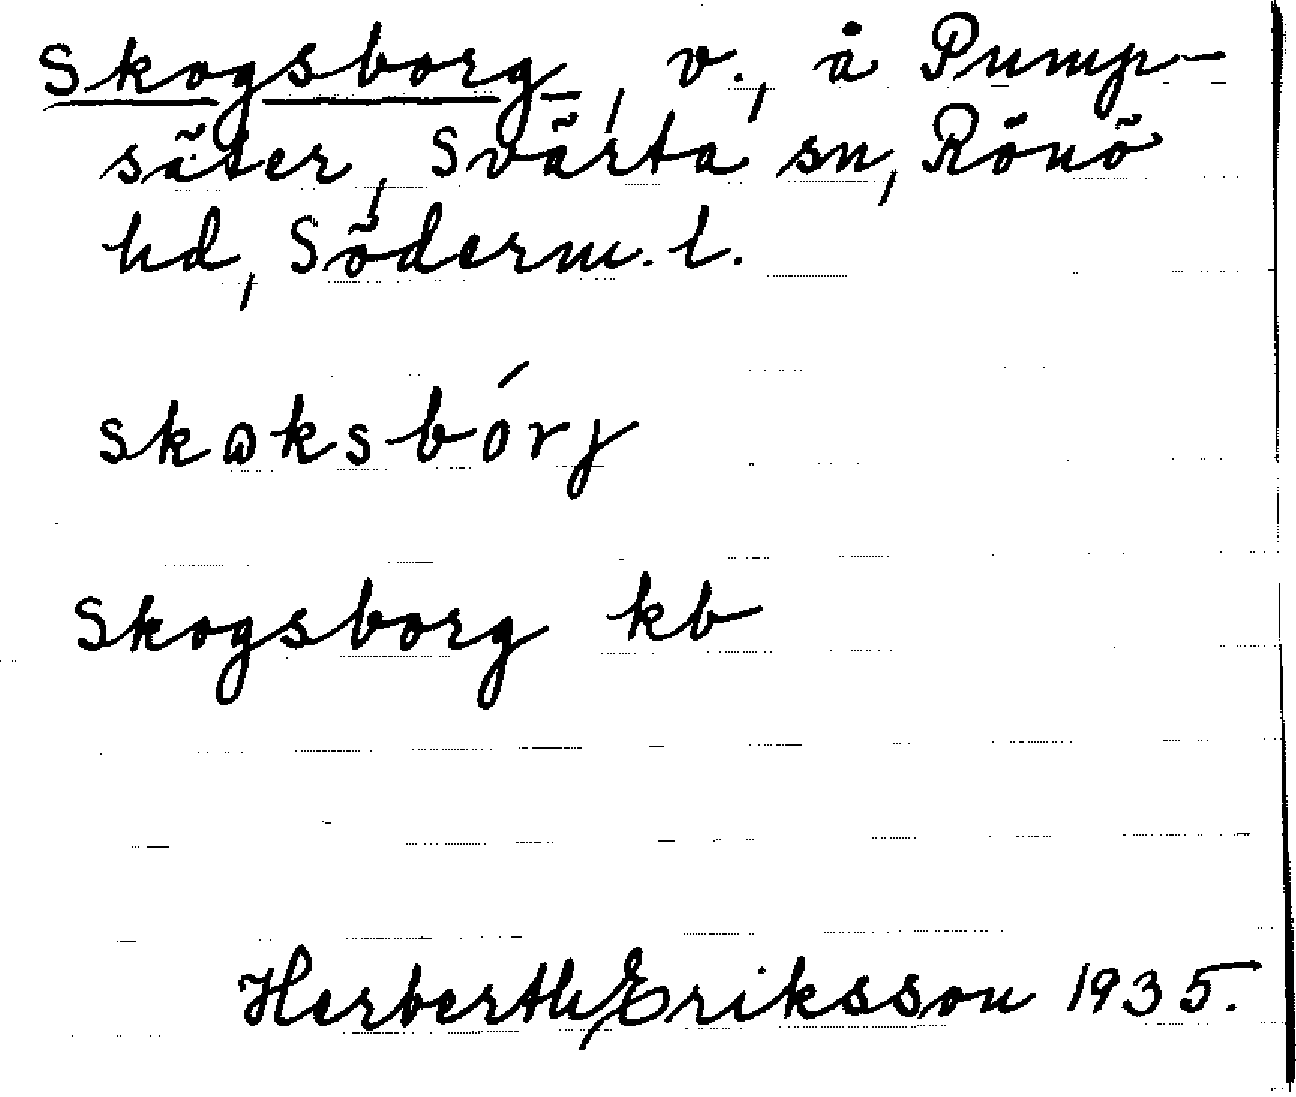 Skogsborg, v., å Pump-
säter, Svärta sn, Rönö
hd, Söderm. l.
skɷksbórj
Skogsborg kb
Herberth Eriksson 1935.